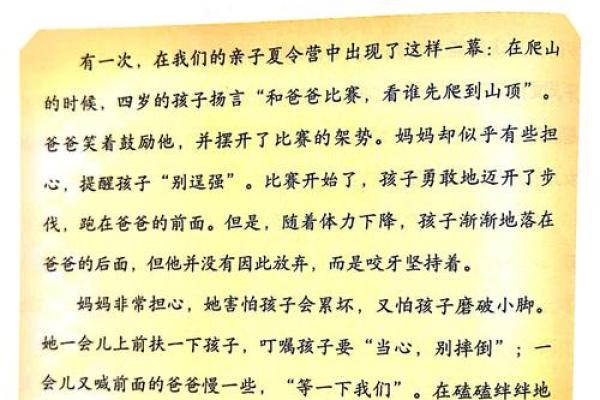 有一次，在我们的亲子夏令营中出现了这样一幕：在爬山
的时候，四岁的孩子扬言“和爸爸比赛，看谁先爬到山顶”。
爸爸笑着鼓励他，并摆开了比赛的架势。妈妈却似乎有些担
心，提醒孩子“别逞强”。比赛开始了，孩子勇敢地迈开了步
伐，跑在爸爸的前面。但是，随着体力下降，孩子渐渐地落在
爸爸的后面，但他并没有因此放弃，而是咬牙坚持着。
妈妈非常担心，她害怕孩子会累坏，又怕孩子磨破小脚。
她一会儿上前扶一下孩子，叮嘱孩子要“当心，别摔倒”；一
会儿又喊前面的爸爸慢一些，“等一下我们”。在磕磕绊绊地